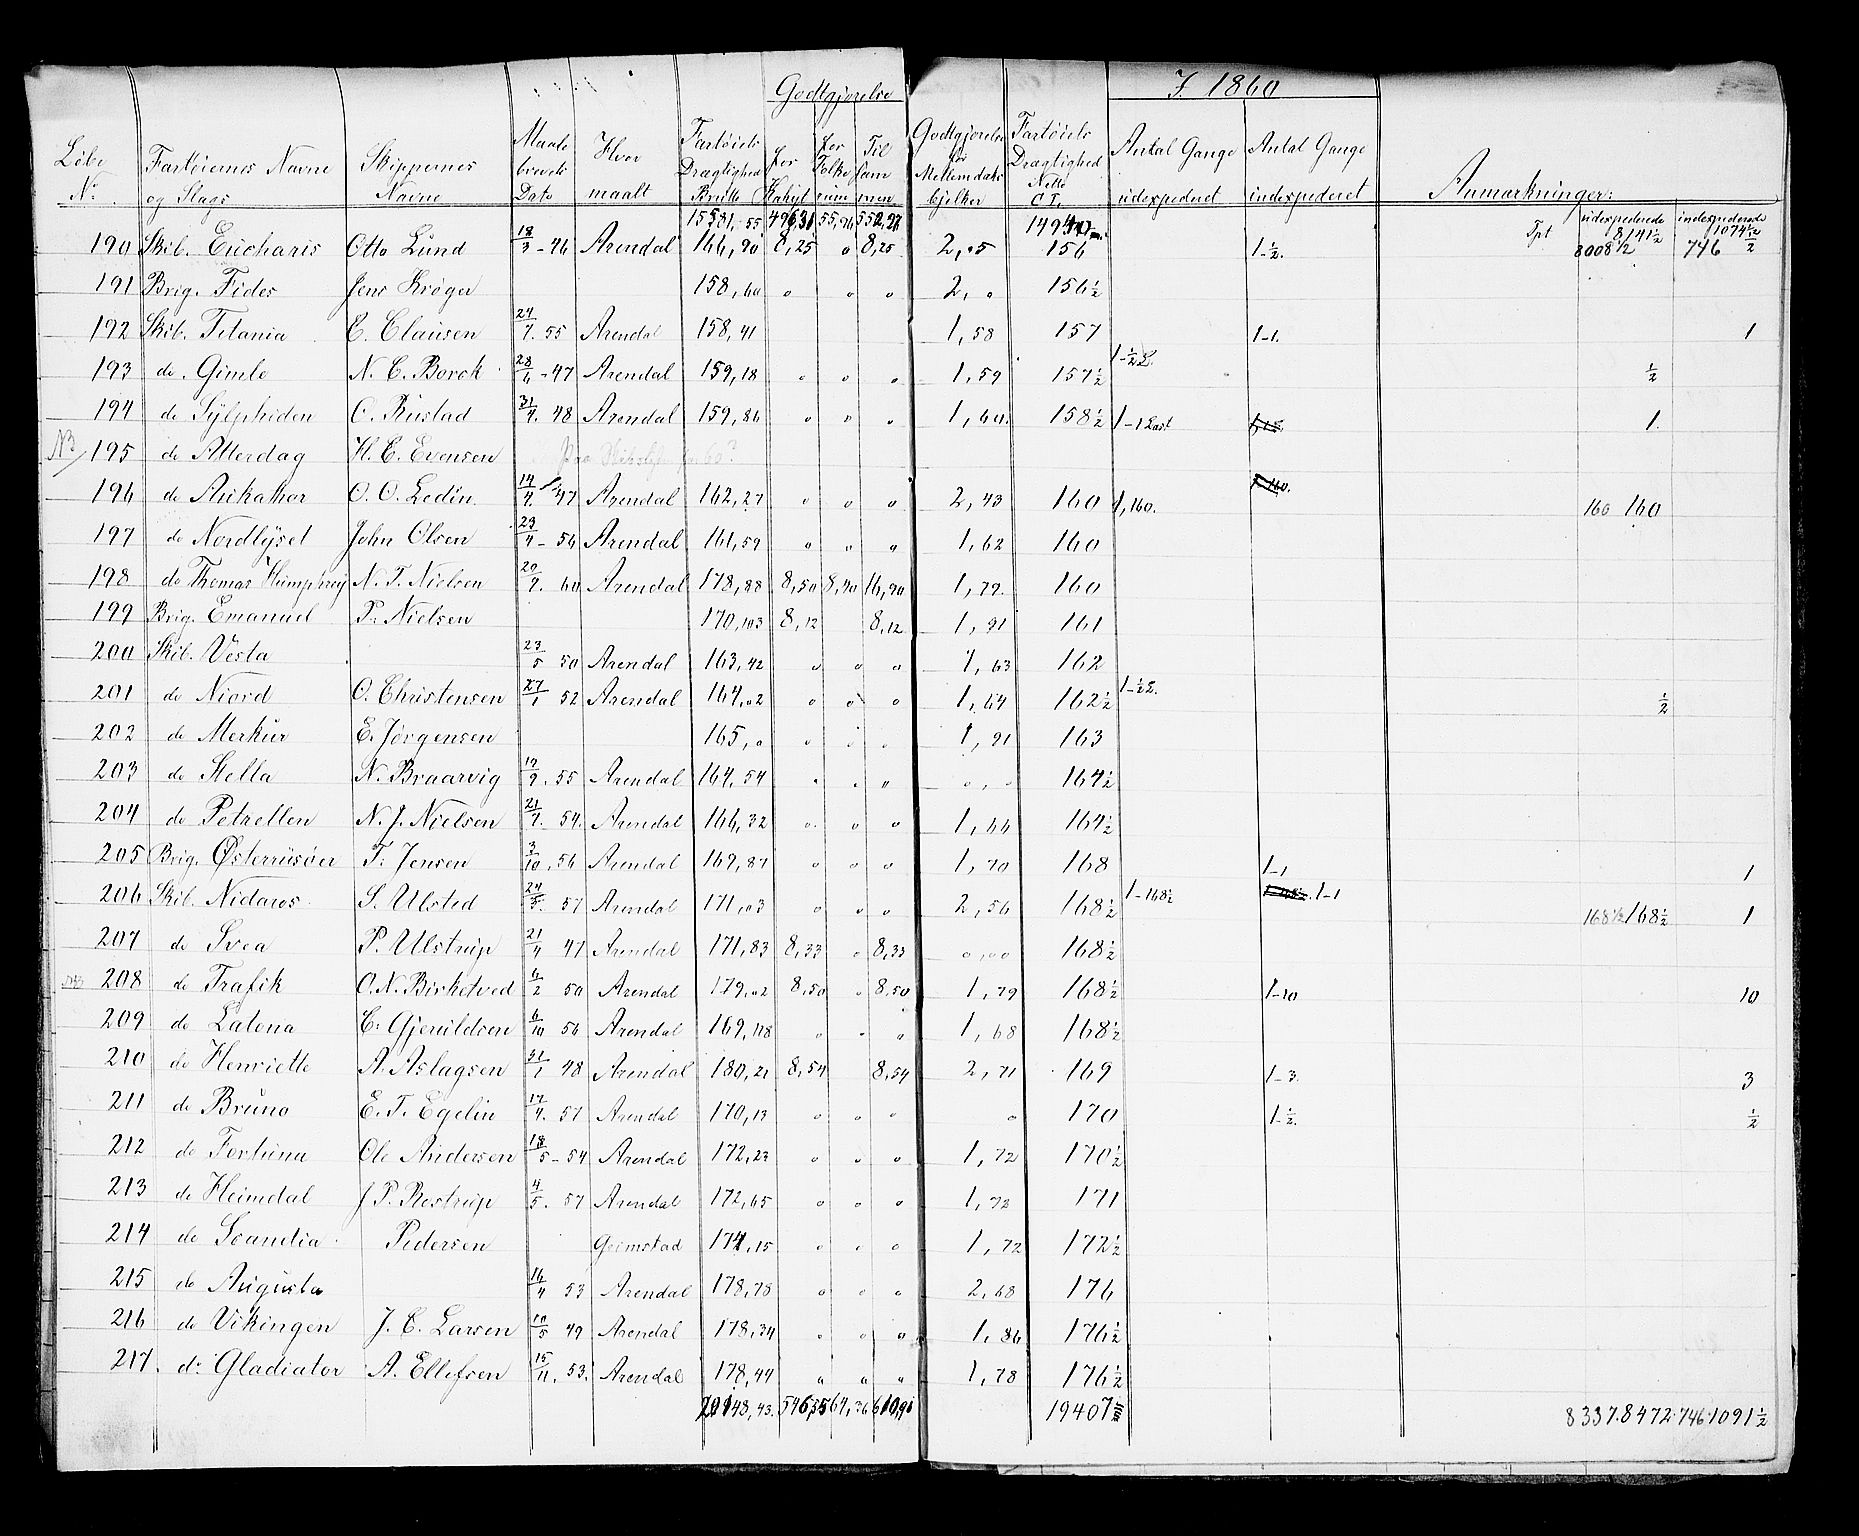 I. 1860
Godtgjörelse
Löbe No. Fartöiernes Navne og Slags Skippernes Navne Maale brevets Dato Hvor maalt Fartöiets Drægtighed Brutto for Kahyt for Folke rum Til sam men Godtgjörelse for Mellemdæks bjelker Fartöiets Drægtighed Netto C.L. Antal Gange udexpederet Antal Gange indexpederet Anmærkninger:
udexpederede indexpederede
15581,55 55,76 Tpt 8141½ 1074½
190 Skib. Eucharis Otto Lund 18/3-46 Arendal 166,90 8,25 " 8,25 2,05 156 1-½. 8008½ 746 ½
191 Brig. Fides Jens Kröger 158,60 " " " 2," 156½
192 Skib. Titania C. Clausen 24/7. 55 Arendal 158,41 1,58 157 1-1. 1
193 do. Gimle N. C. Borck 28/6-47 Arendal 159,18 " " " 1,59 157½ 1-½L. ½
194 do Sylphiden C. Rustad 31/7. 48 Arendal 159,86 " " " 1,60. 158½ 1-1 Last 1.
NB 195 do Atterdag H. C. Evensen
196 do Ankathor O. O. Ledin 14/7. 47 Arendal 162,27 " " " 2,43 160 1,160. 160 160
197 do Nordlyset John Olsen 23/4-56 Arendal 161,59 " " " 1,62 160
198 do Thomas Humphrey N. T. Nielsen 20/7. 60 Arendal 178,88 8,50 8,40 16,90 1,79. 160
199 Brig. Emanuel P. Nielsen 170,103 8,12 8,12 1,91 161
200 Skib. Vesta 23/5 50 Arendal 163,42 " " " 1,63 162
201 do Niord O. Christensen 27/1 52 Arendal 164,02 " " " 1,64 162½ 1-½L. ½
202 do Merkur E. Jörgensen 165," " " " 1,91 163
203 do Stella N. Braarvig 19/9. 55 Arendal 164,54 " " " "," 164½
204 do Petrellen N. J. Nielsen 21/7. 54. Arendal 166,32 " " " 1,66 164½
205 Brig. Østerrüsöer T. Jensen 3/10. 56 Arendal 169,87 " " " 1,70 168 1-1 1
206 Skib. Nidaros S. Ulsted 24/5. 57 Arendal 171,03 " " " 2,56 168½ 1-168½ 1-1 168½ 168½ 1
207 do Svea P. Ulstrup 21/4 47 Arendal 171,83 8,33 " 8,33 ",00 168½
NB 208 do Trafik O. N. Birketved 6/2 50 Arendal 179,02 8,50 " 8,50 1,79 168½ 1-10 10
209 do Latona C. Gjeruldsen 6/10 56 Arendal 169,118 " " " 1,68 168½
210 do Henriette A. Aslagsen 31/1 48 Arendal 180,21 8,54 8,54 2,71 169 1-3. 3
211 do Bruno E. T. Egelin 17/4. 57 Arendal 170,13 " " " " 170 1-½. ½
212 do Fortuna Ole Andersen 18/5-54 Arendal 172,23 " " " 1,72 170½
213 do Heimdal J P. Rostrup 4/5. 57 Arendal 172,65 " " " 1,72 171
214 do Scandia Pedersen Grimstad 174,15 " " " 1,72 172½
215 do Augusta 16/4 53 Arendal 178,78 " " " 2,68 176
216 do Vikingen J. C. Larsen 10/5 49 Arendal 178,34 " " " 1,86 176½
217. do Gladiator A. Ellefsen 15/11. 53. Arendal 178,44 " " " 1,78 176½
20148,43. 64,36 610,91 19407½ 8337. 8472. 746. 1091½